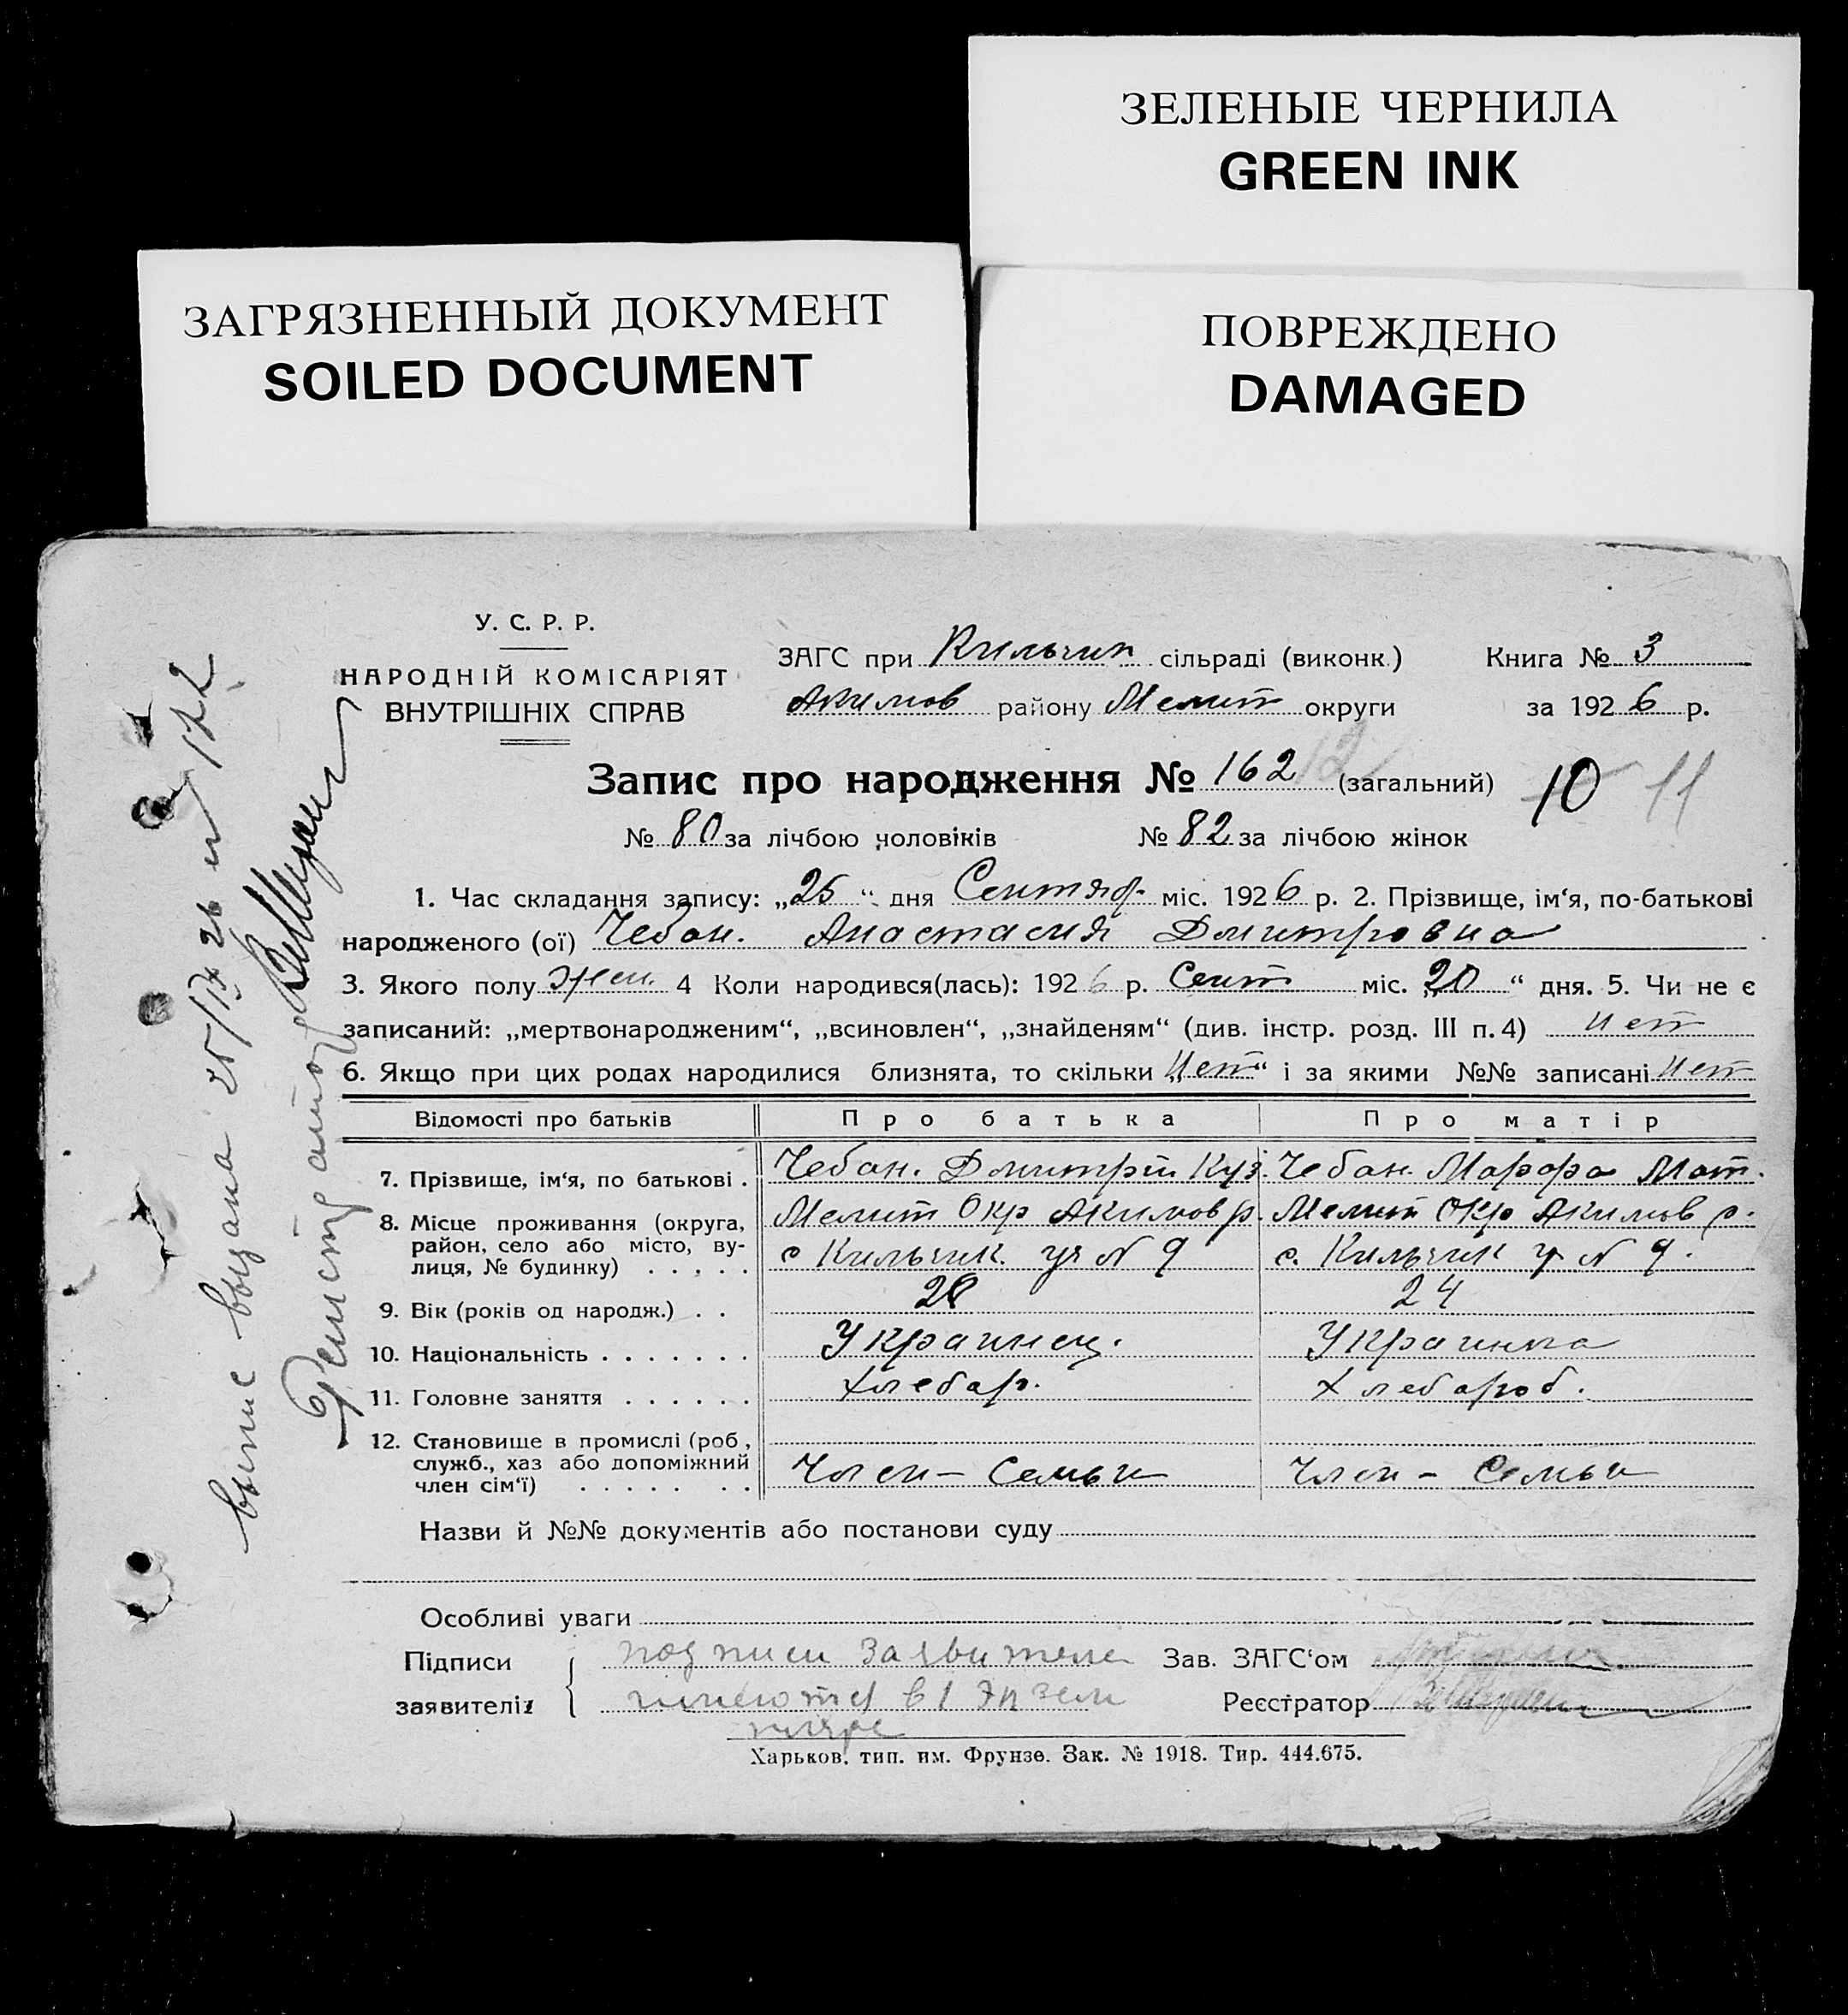 ЗЕЛЕНЫЕ ЧЕРНИЛА
GREEN INK
ЗАГРЯЗНЕННЫЙ ДОКУМЕНТ
SOILED DOCUMENT
ПОВРЕЖДЕНО
DAMAGED
У. С. Р. Р.
НАРОДНІЙ КОМІСАРІЯТ
ВНУТРІШНІХ СПРАВ
ЗАГС при Кильчик сільраді (виконк.)
Акимов району Мелит округи
Книга № 3
за 1926 р.
Запис про народження № 162 (загальний) 10 11
№ 80 за лічбою чоловіків № 82 за лічбою жінок
1. Час складання запису: „25“ дня Сентяб. міс. 1926 р. 2. Прізвище, ім‘я, по-батькові
народженого (ої) Чебан. Анастасия Дмитровна
3. Якого полу жен. 4 Коли народився(лась): 1926 р. Сент міс. „20“ дня. 5. Чи не є
записаний: „мертвонародженим“, „всиновлен“, „знайденям“ (див. інстр. розд. III п. 4) нет
6. Якщо при цих родах народилися близнята, то скільки „нет“ і за якими №№ записані нет
Відомості про батьків Про батька Про матір
7. Прізвище, ім‘я, по батькові . Чебан. Дмитрий Куз. Чебан Марфа Мат.
8. Місце проживання (округа, Мелит Окр Акимов р. Мелит Окр Акимов р.
район, село або місто, ву-
лиця, № будинку) . . . . . с Кильчик уч N 9 с. Кильчик у N 9.
9. Вік (років од народж.) . . 28 24
10. Національність . . . . . . . Украинец. Украинка
11. Головне заняття . . . . . . Хлебар. Хлебароб.
12. Становище в промислі (роб.,
служб., хаз або допоміжний
член сім‘ї) . . . . . . . Член - Семьи Член - Семьи
Назви й №№ документів або постанови суду
Особливі уваги
Підписи подписи заявителе Зав. ЗАГС‘ом
заявителів имеются в 1 Экзем Реєстратор
пляре
Харьков, тип. им. Фрунзе. Зак. № 1918. Тир. 444.675.
выпис выдана 25/IX 26 N 172
Регистратор